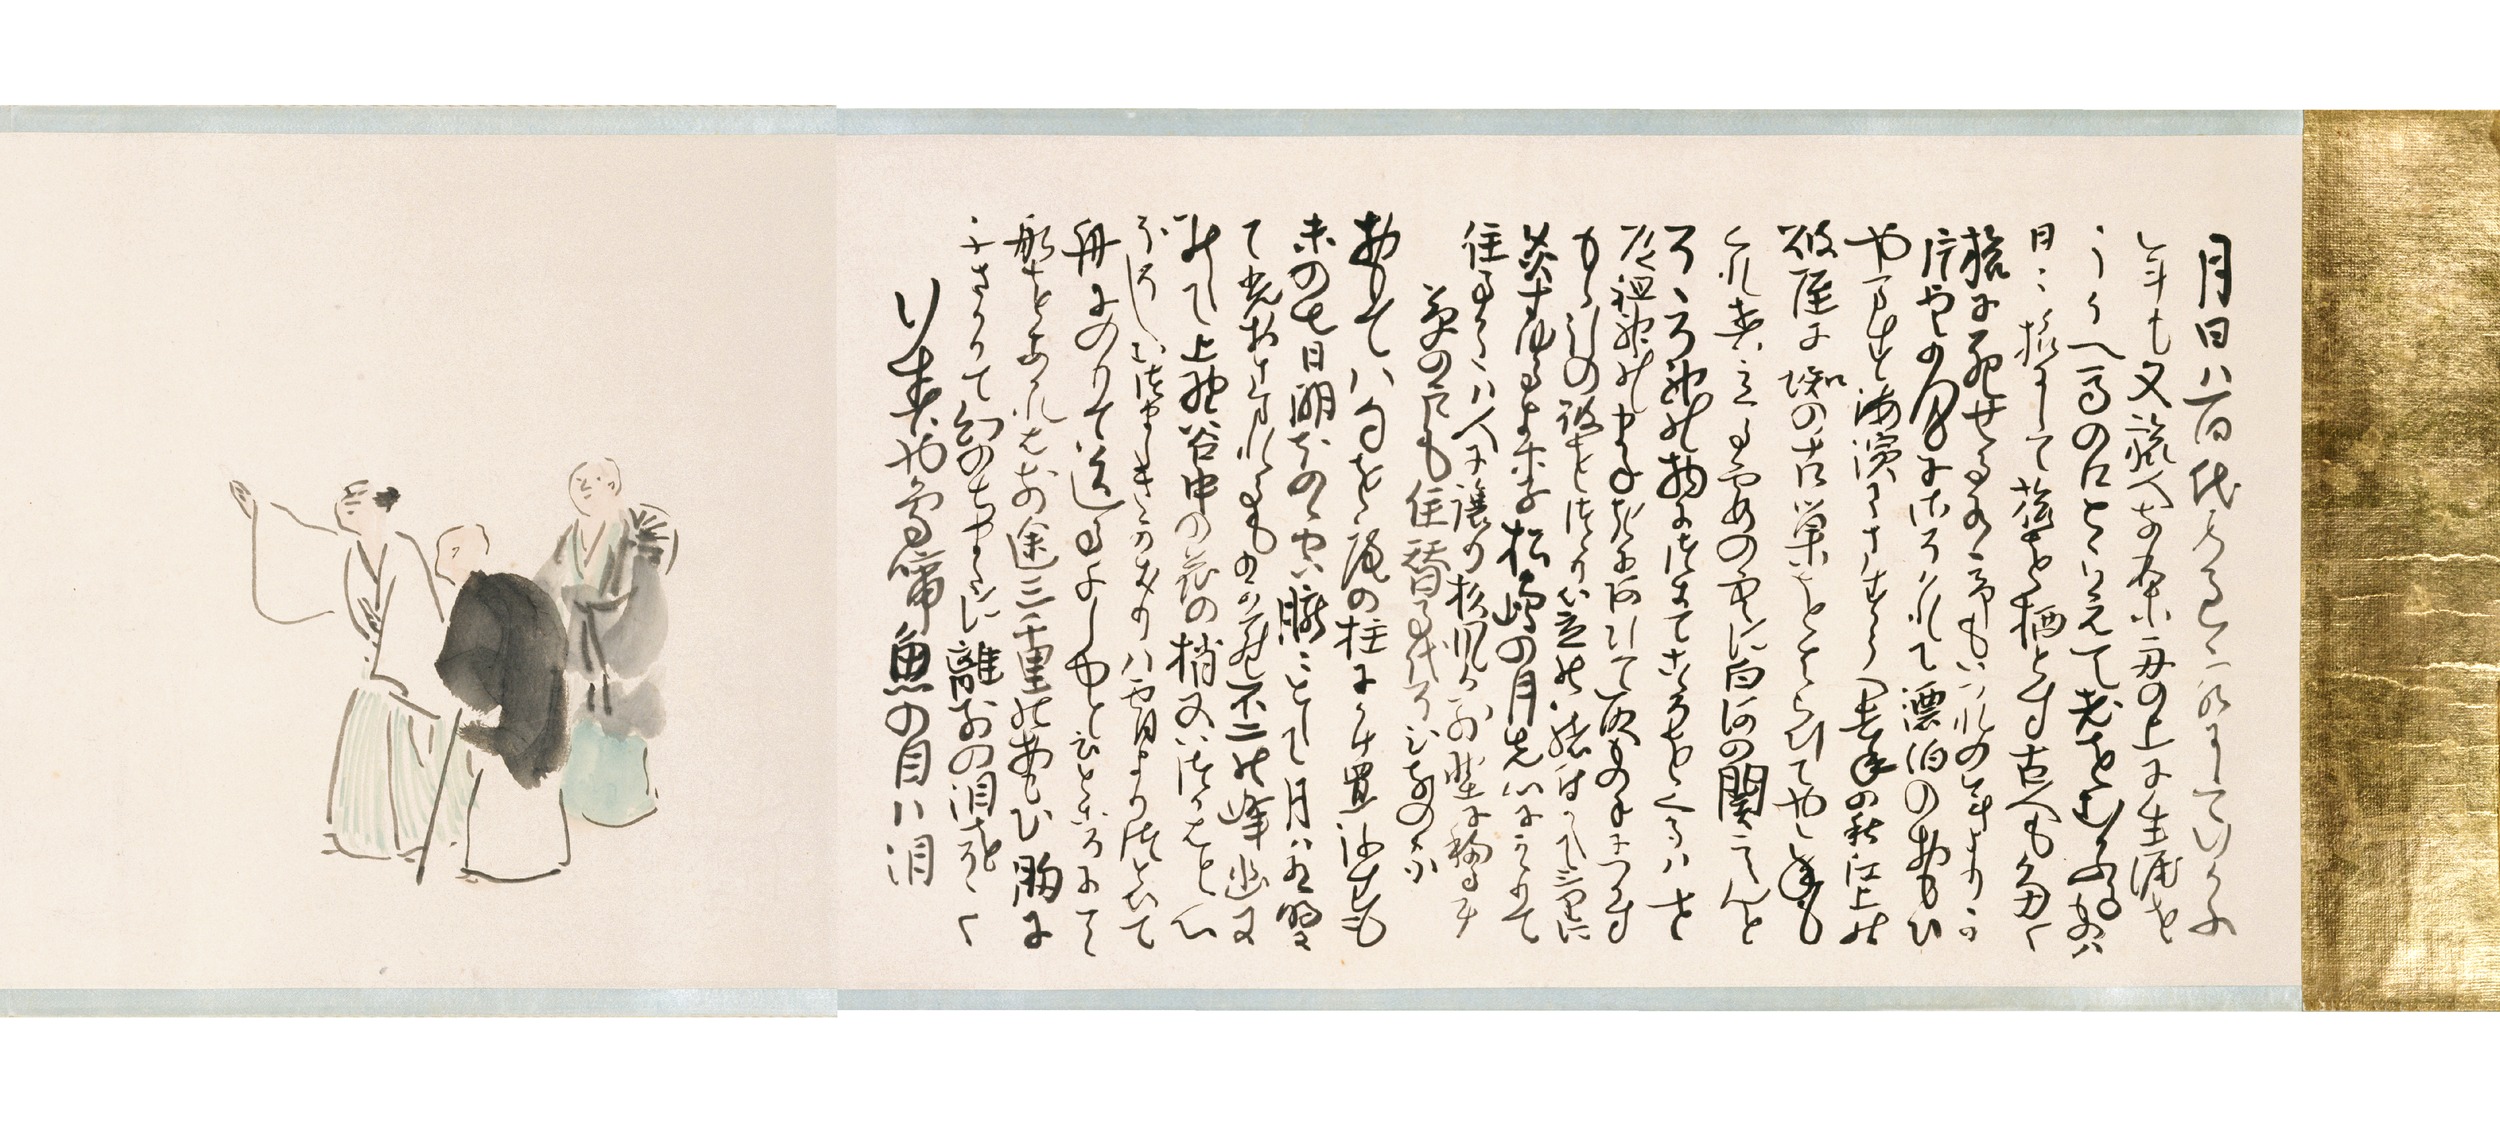 月日ハ百代の過客にしていきかふ
年も又旅人なり舟の上に生涯を
うかへ馬の口とらえて老をむかふる者ハ
日々旅にして旅を栖とす古人も多く
旅に死せるあり予もいつれの年よりか
片雲の風にさそはれて漂泊の思ひ
やます海濱にさすらへ去年の秋江上の
破屋に蜘の古巣をはらひてやゝ年も
くれ春立る霞の空に白河の関こえんと
そゝろ神の物につきてこゝろをくるはせ
道祖神のまねきにあひて取もの手につかす
もゝ引の破をつゝり笠の緒付かへて三里に
灸すゆるより松嶋の月先心にかゝりて
住る方ハ人に譲り杉風か別墅に移るに
草の戸も住替る代そひなの家
面八句を庵の柱にかけ置弥生も
末の七日明ほのゝ空朧々として月ハ有明に
て光おさまれるものから不二の峰幽に
みえて上野谷中の花の梢又いつかはと心
ほそしむつましきかきりハ宵よりつとひて
舟にのりて送る千しゆと云ところにて
船をあかれは前途三千里の思ひ胸に
ふさかりて幻のちまたに離別の泪をそゝく
行春や鳥啼魚の目ハ泪